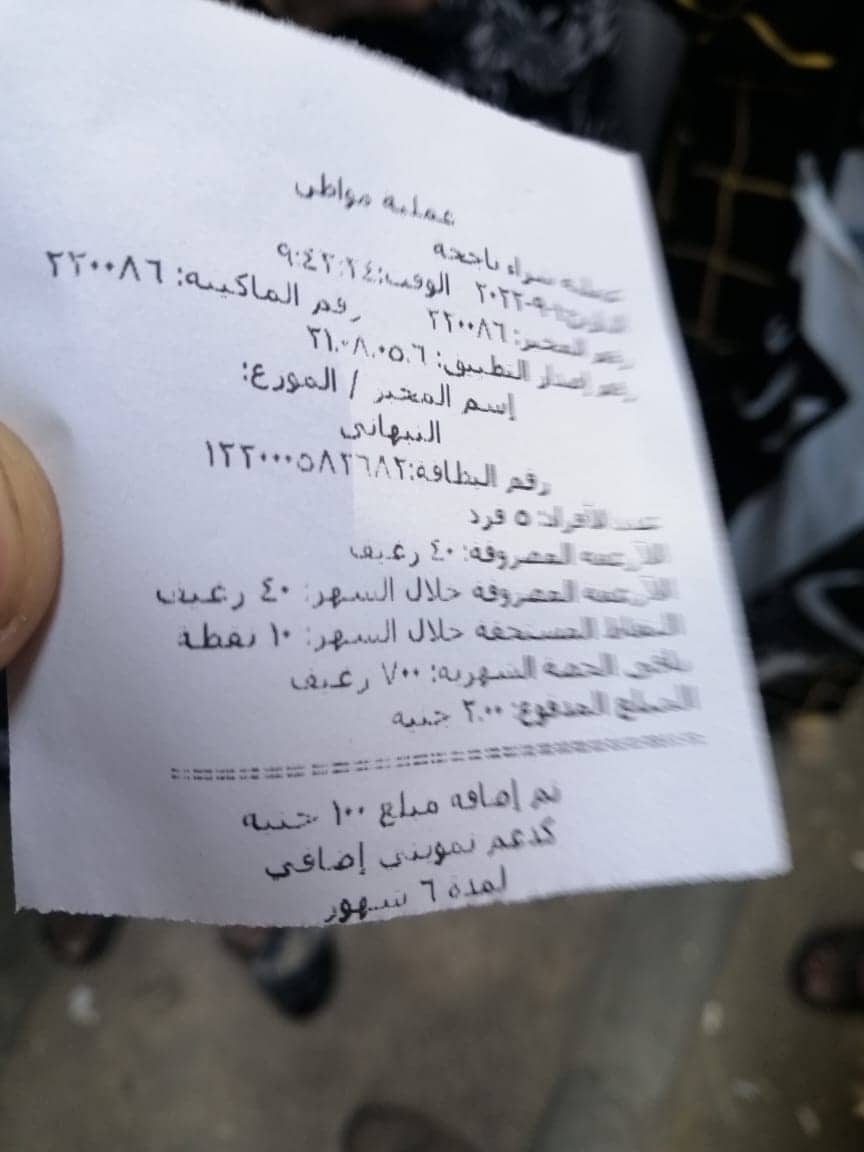 عملية مواطن
عملية شراء ناجحة
الوقت:٩:٤٢:٢٤
رقم المخبز: ٢٢٠٠٨٦ رقم الماكينة: ٢٢٠٠٨٦
رقم إصدار التطبيق: ٣١.٠٨.٠٥.٦
إسم المخبز / الموزع:
النبهانى
رقم البطاقة:١٢٢٠٠٠٥٨٢٦٨٢
عدد الأفراد: ٥ فرد
الأرغفة المصروفة: ٤٠ رغيف
الأرغفة المصروفة خلال الشهر: ٤٠ رغيف
النقاط المستحقة خلال الشهر: ١٠ نقطة
باقى الحصة الشهرية: ٧٠٠ رغيف
المبلغ المدفوع: ٢.٠٠ جنيه
========================
تم إضافة مبلغ ١٠٠ جنيه
كدعم تمويني إضافي
لمدة ٦ شهور